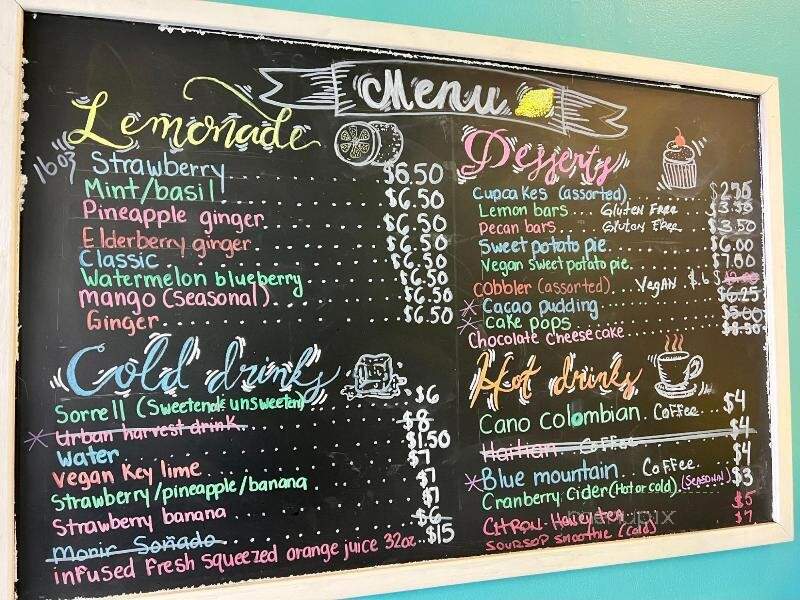 Menu
Lemonade
16oz
Strawberry $6.50
Mint/basil $6.50
Pineapple ginger $6.50
Elderberry ginger $6.50
Classic $6.50
Watermelon blueberry $6.50
Mango (Seasonal) $6.50
Ginger $6.50
Cold drinks
Sorrell (Sweetened unsweeten) $6
Urban harvest drink $8
Water $1.50
Vegan Key lime $7
Strawberry/pineapple/banana $7
Strawberry banana $7
Morir Soñado $6
infused Fresh squeezed orange juice 32oz $15
Desserts
Cupcakes (assorted)
Lemon bars... Gluten Free $3.50
Pecan bars Gluten Free $3.50
Sweet potato pie $6.00
Vegan sweet potato pie $7.00
Cobbler (assorted) Vegan $.6
Cacao pudding $6.25
Cake pops $5.00
Chocolate cheesecake $8.50
Hot drinks
Cano Colombian.. Coffee... $4
Haitian... Coffee $4
Blue mountain.. Coffee.. $4
Cranberry Cider (Hot or cold). (Seasonal) $3
CITRON-Honey tea $5
Soursop smoothie (Cold) $7